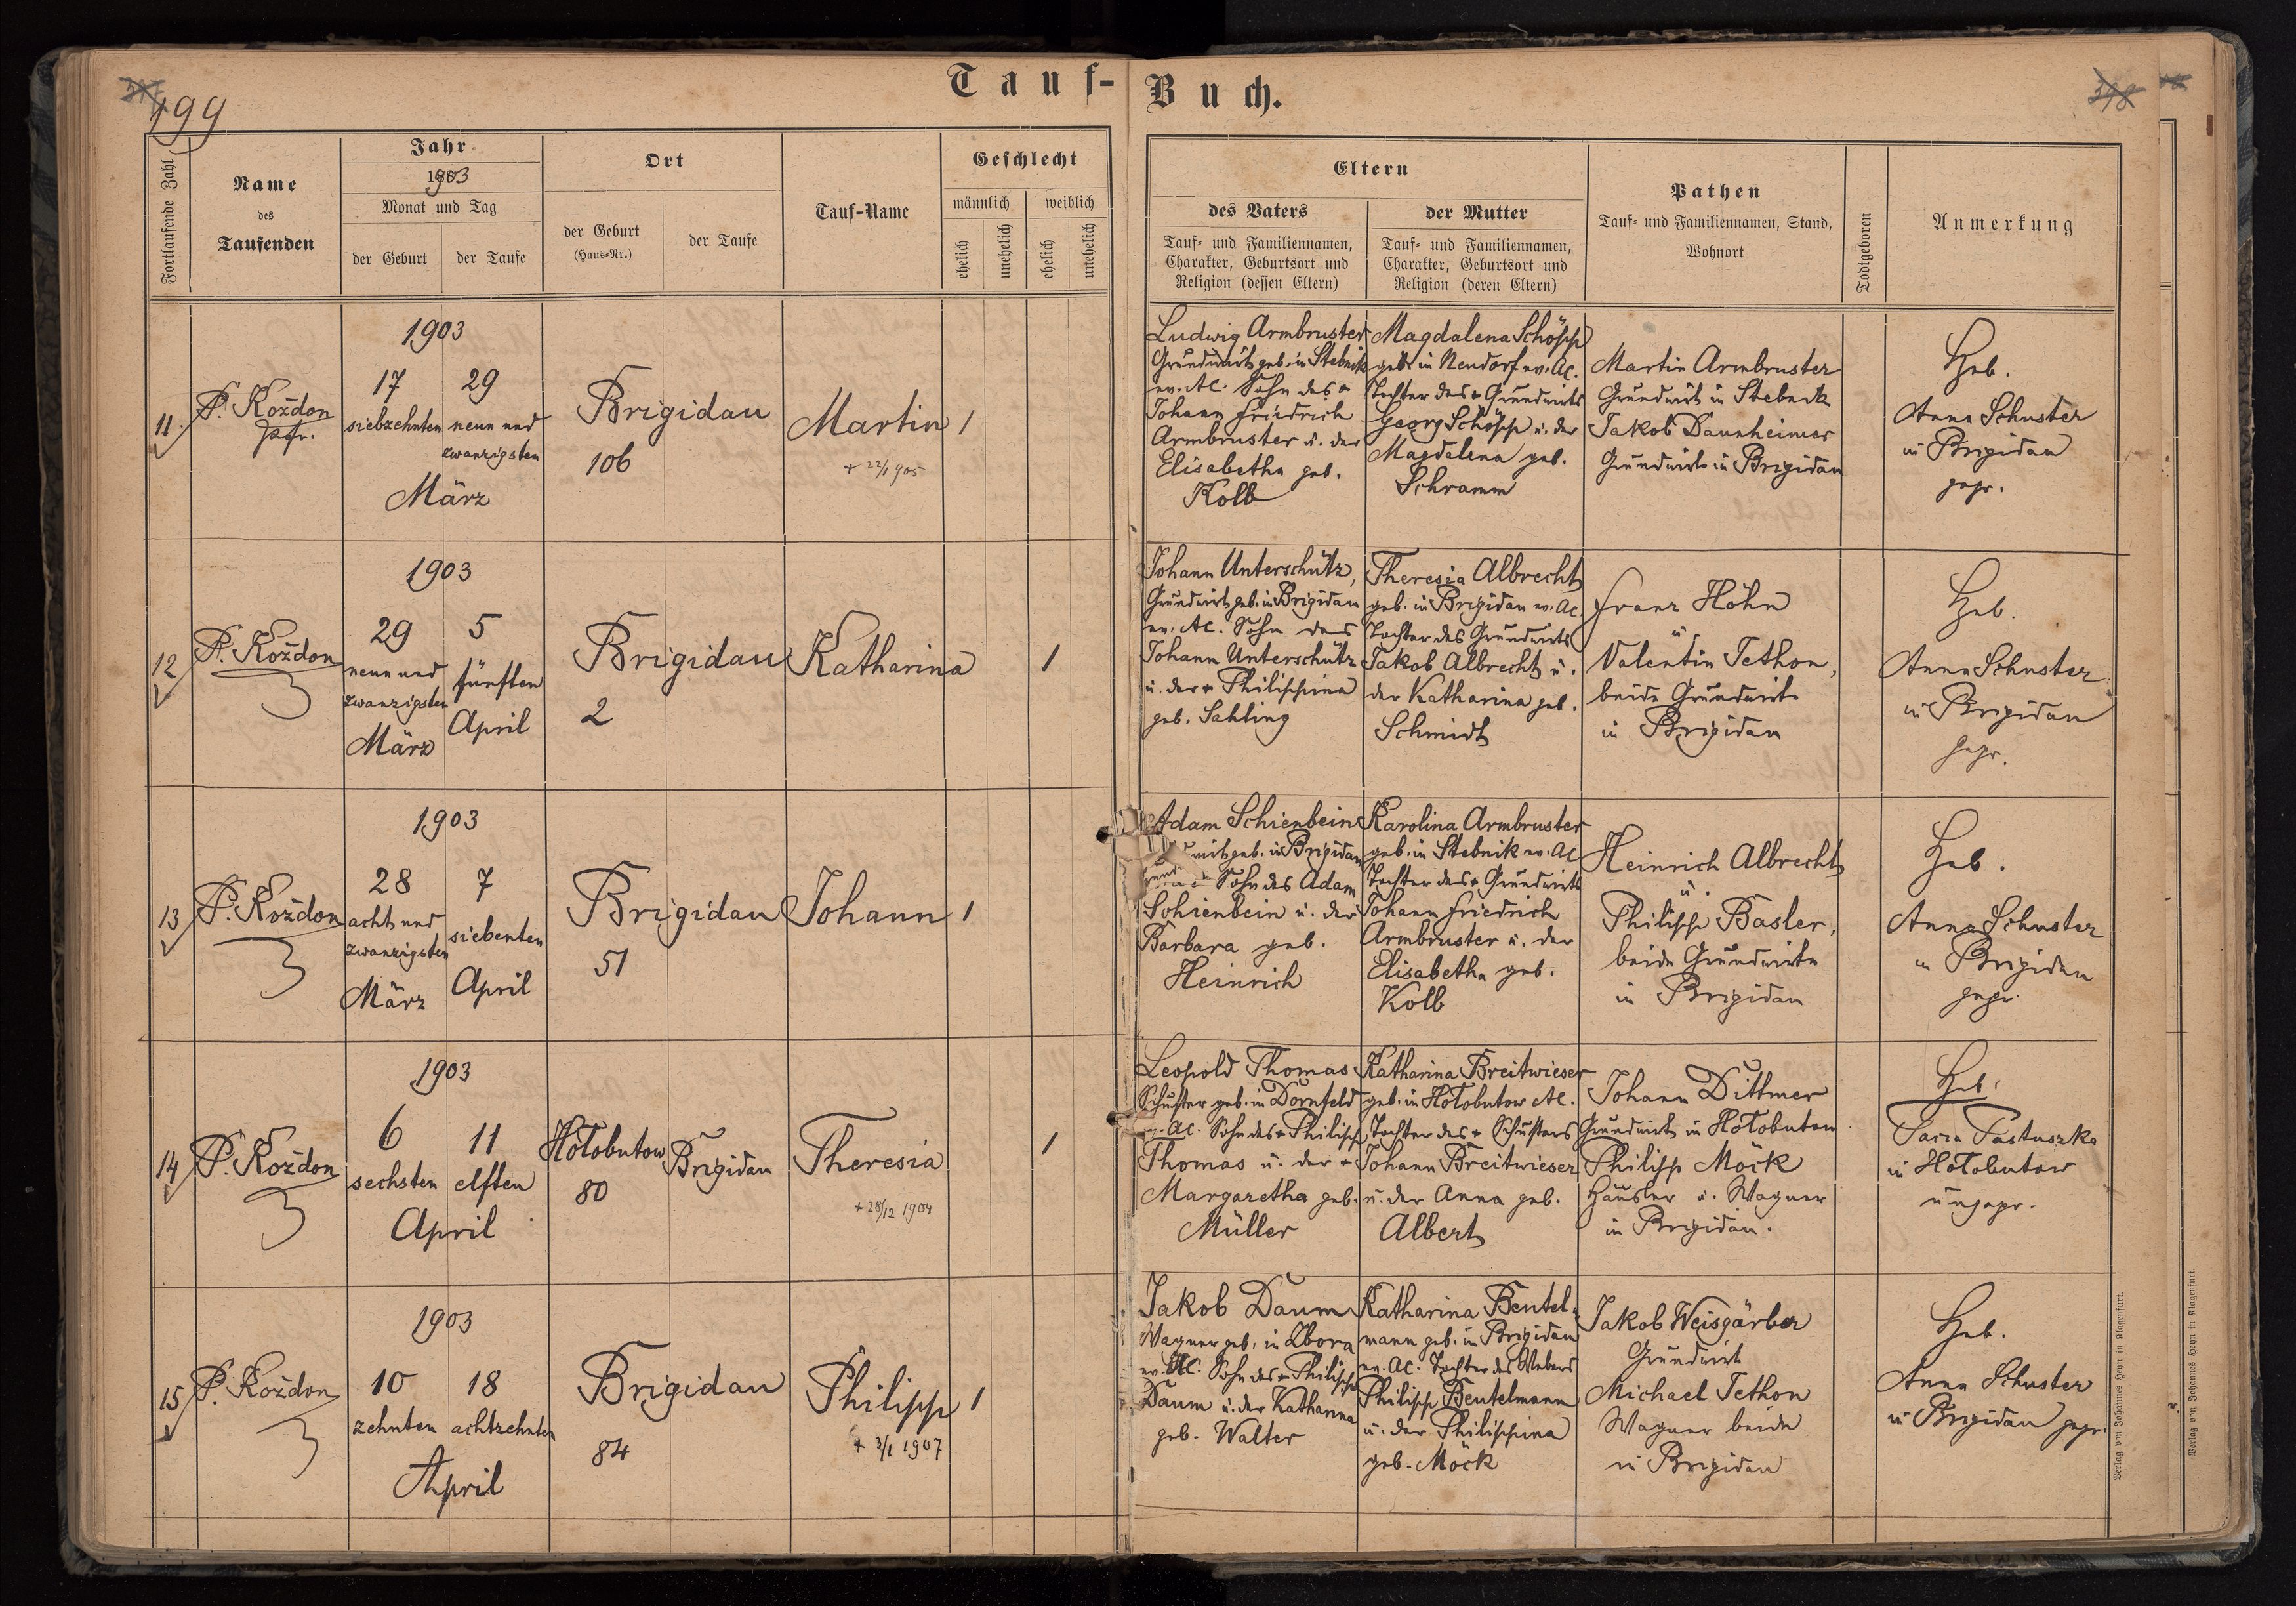 Tauf-Buch.
199
Fortlaufende Zahl
Name
des
Taufenden
Jahr
1903
Monat und Tag
der Geburt
der Taufe
Ort
der Geburt
(Haus-Nr.)
der Taufe
Tauf-Name
Geschlecht
männlich
weiblich
ehelich
unehelich
ehelich
unehelich
Eltern
des Vaters
Tauf- und Familiennamen,
Charakter, Geburtsort und
Religion (dessen Eltern)
der Mutter
Tauf- und Familiennamen,
Charakter, Geburtsort und
Religion (deren Eltern)
Pathen
Tauf- und Familiennamen, Stand,
Wohnort
Todtgeboren
Anmerkung
11.
P. Kożdon
Pfr.
1903
17
siebzehnten
29
neun und
zwanzigsten
März
Brigidau
106
Martin
+ 22/1 905
1
Ludwig Armbruster
Grundwirt geb. in Stebnik
ev. AC. Sohn des +
Johann Friedrich
Armbruster u. der
Elisabetha geb.
Kolb
Magdalena Schöpp
geb. in Neudorf ev. AC.
Tochter des + Grundwirts
Georg Schöpp u. der
Magdalena geb.
Schramm
Martin Armbruster
Grundwirt in Stebnik
Jakob Daunheimer
Grundwirt in Brigidau
Heb.
Anna Schuster
in Brigidau
gepr.
12
P. Kożdon
1903
29
neun und
zwanzigsten
März
5
fünften
April
Brigidau
2
Katharina
1
Johann Unterschütz,
Grundwirt geb. in Brigidau
ev. AC. Sohn des
Johann Unterschütz
u. der + Philippina
geb. Sahling
Theresia Albrecht
geb. in Brigidau ev. AC.
Tochter des Grundwirts
Jakob Albrecht u.
der Katharina geb.
Schmidt
Franz Höhn
u.
Valentin Tethon,
beide Grundwirte
in Brigidau
Heb.
Anna Schuster
in Brigidau
gepr.
13
P. Kożdon
1903
28
acht und
zwanzigsten
März
7
siebenten
April
Brigidau
51
Johann
1
Adam Schienbein
geb. in Brigidau
Sohn des Adam
Schienbein u. der
Barbara geb.
Heinrich
Karolina Armbruster
geb. in Stebnik ev. AC
Tochter des + Grundwirts
Johann Friedrich
Armbruster u. der
Elisabetha geb.
Kolb
Heinrich Albrecht
u.
Philipp Basler,
beide Grundwirte
in Brigidau
Heb.
Anna Schuster
in Brigidau
gepr.
14
P. Kożdon
1903
6
sechsten
11
elften
April
Hołobutow
80
Brigidau
Theresia
+ 28/12 1904
1
Leopold Thomas
Schuster geb. in Dornfeld
ev. AC. Sohn des + Philipp
Thomas u. der +
Margaretha geb.
Müller
Katharina Breitwieser
geb. in Hołobutow AC.
Tochter des + Schusters
Johann Breitwieser
u. der Anna geb.
Albert
Johann Dittmer
Grundwirt in Hołobutow
Philipp Möck
Häusler u. Wagner
in Brigidau.
Heb.
Pastuszka
in Hołobutow
ungepr.
15
P. Kożdon
1903
10
zehnten
18
achtzehnten
April
Brigidau
84
Philipp
+ 3/1 1907
1
Jakob Daum
Wagner geb. in Zbora
ev. AC. Sohn des + Philipp
Daum u. der Katharina
geb. Walter
Katharina Beutel-
mann geb. in Brigidau
ev. AC. Tochter des Webers
Philipp Beutelmann
u. der Philippina
geb. Möck
Jakob Weisgärber
Grundwirt
Michael Tethon
Wagner beide
in Brigidau
Heb.
Anna Schuster
in Brigidau gepr.
Verlag von Johannes Heyn in Klagenfurt.
Verlag von Johannes Heyn in Klagenfurt.